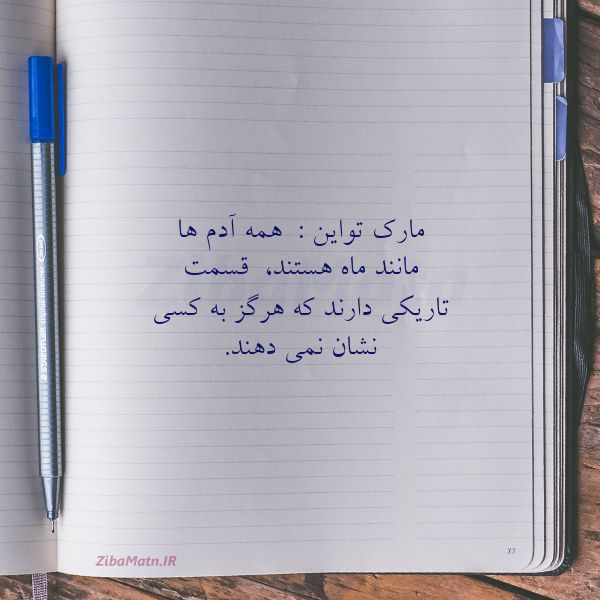 مارک تواین : همه آدم ها
مانند ماه هستند، قسمت
تاریکی دارند که هرگز به کسی
نشان نمی دهند.
77
ZibaMatn.IR